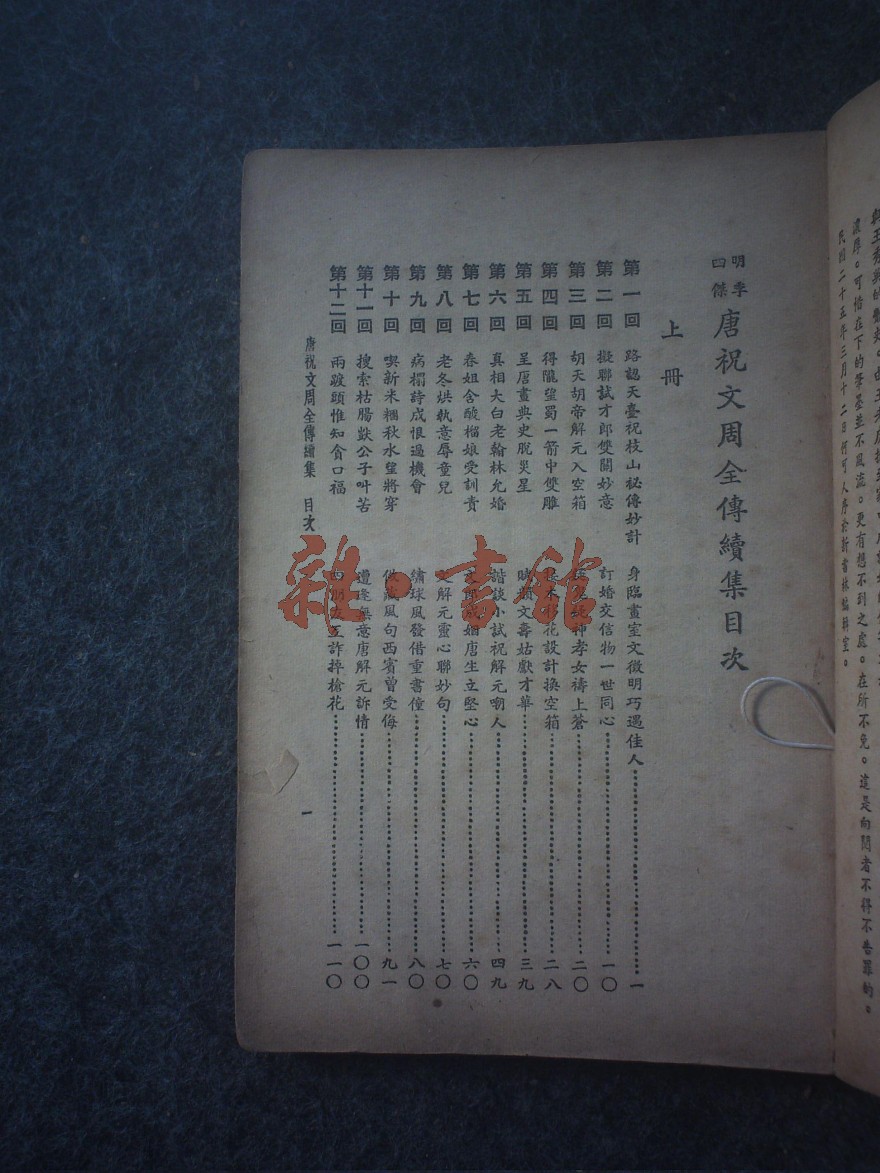 濃厚。可惜在下的筆墨並不風流。更有想不到之處。在所不免。這是向閱者不得不告罪的。
民國二十五年三月十二日何可人序於新書林編輯室。
明季四傑 唐祝文周全傳續集目次
上冊
第一回 路認天臺祝枝山祕傳妙計 身臨畫室文徵明巧遇佳人 一
第二回 擬聯試才郎雙關妙意 訂婚交信物一世同心 一〇
第三回 胡天胡帝解元入空箱 神孝女禱上蒼 二〇
第四回 得隴望蜀一箭中雙雕 接木移花設計換空箱 二八
第五回 呈唐畫典史脫災星 文壽姑獻才華 三九
第六回 真相大白老翰林允婚 諧談小試祝解元嘲人 四九
第七回 春姐含酸榴娘受訓責 成婚唐生立堅心 六〇
第八回 老冬烘執意辱童兒 文解元靈心聯妙句 七〇
第九回 病榻詩成恨過機會 繡球風發借重書僮 八〇
第十回 喫新米糰秋水望將穿 做風句西賓曾受侮 九一
第十一回 搜索枯腸獃公子叶苦 遭逢無意唐解元訴情 一〇〇
第十二回 兩踱頭惟知貪口福 四朋友互詐掉槍花 一一〇
唐祝文周全傳續集 目次
一
雜·書館